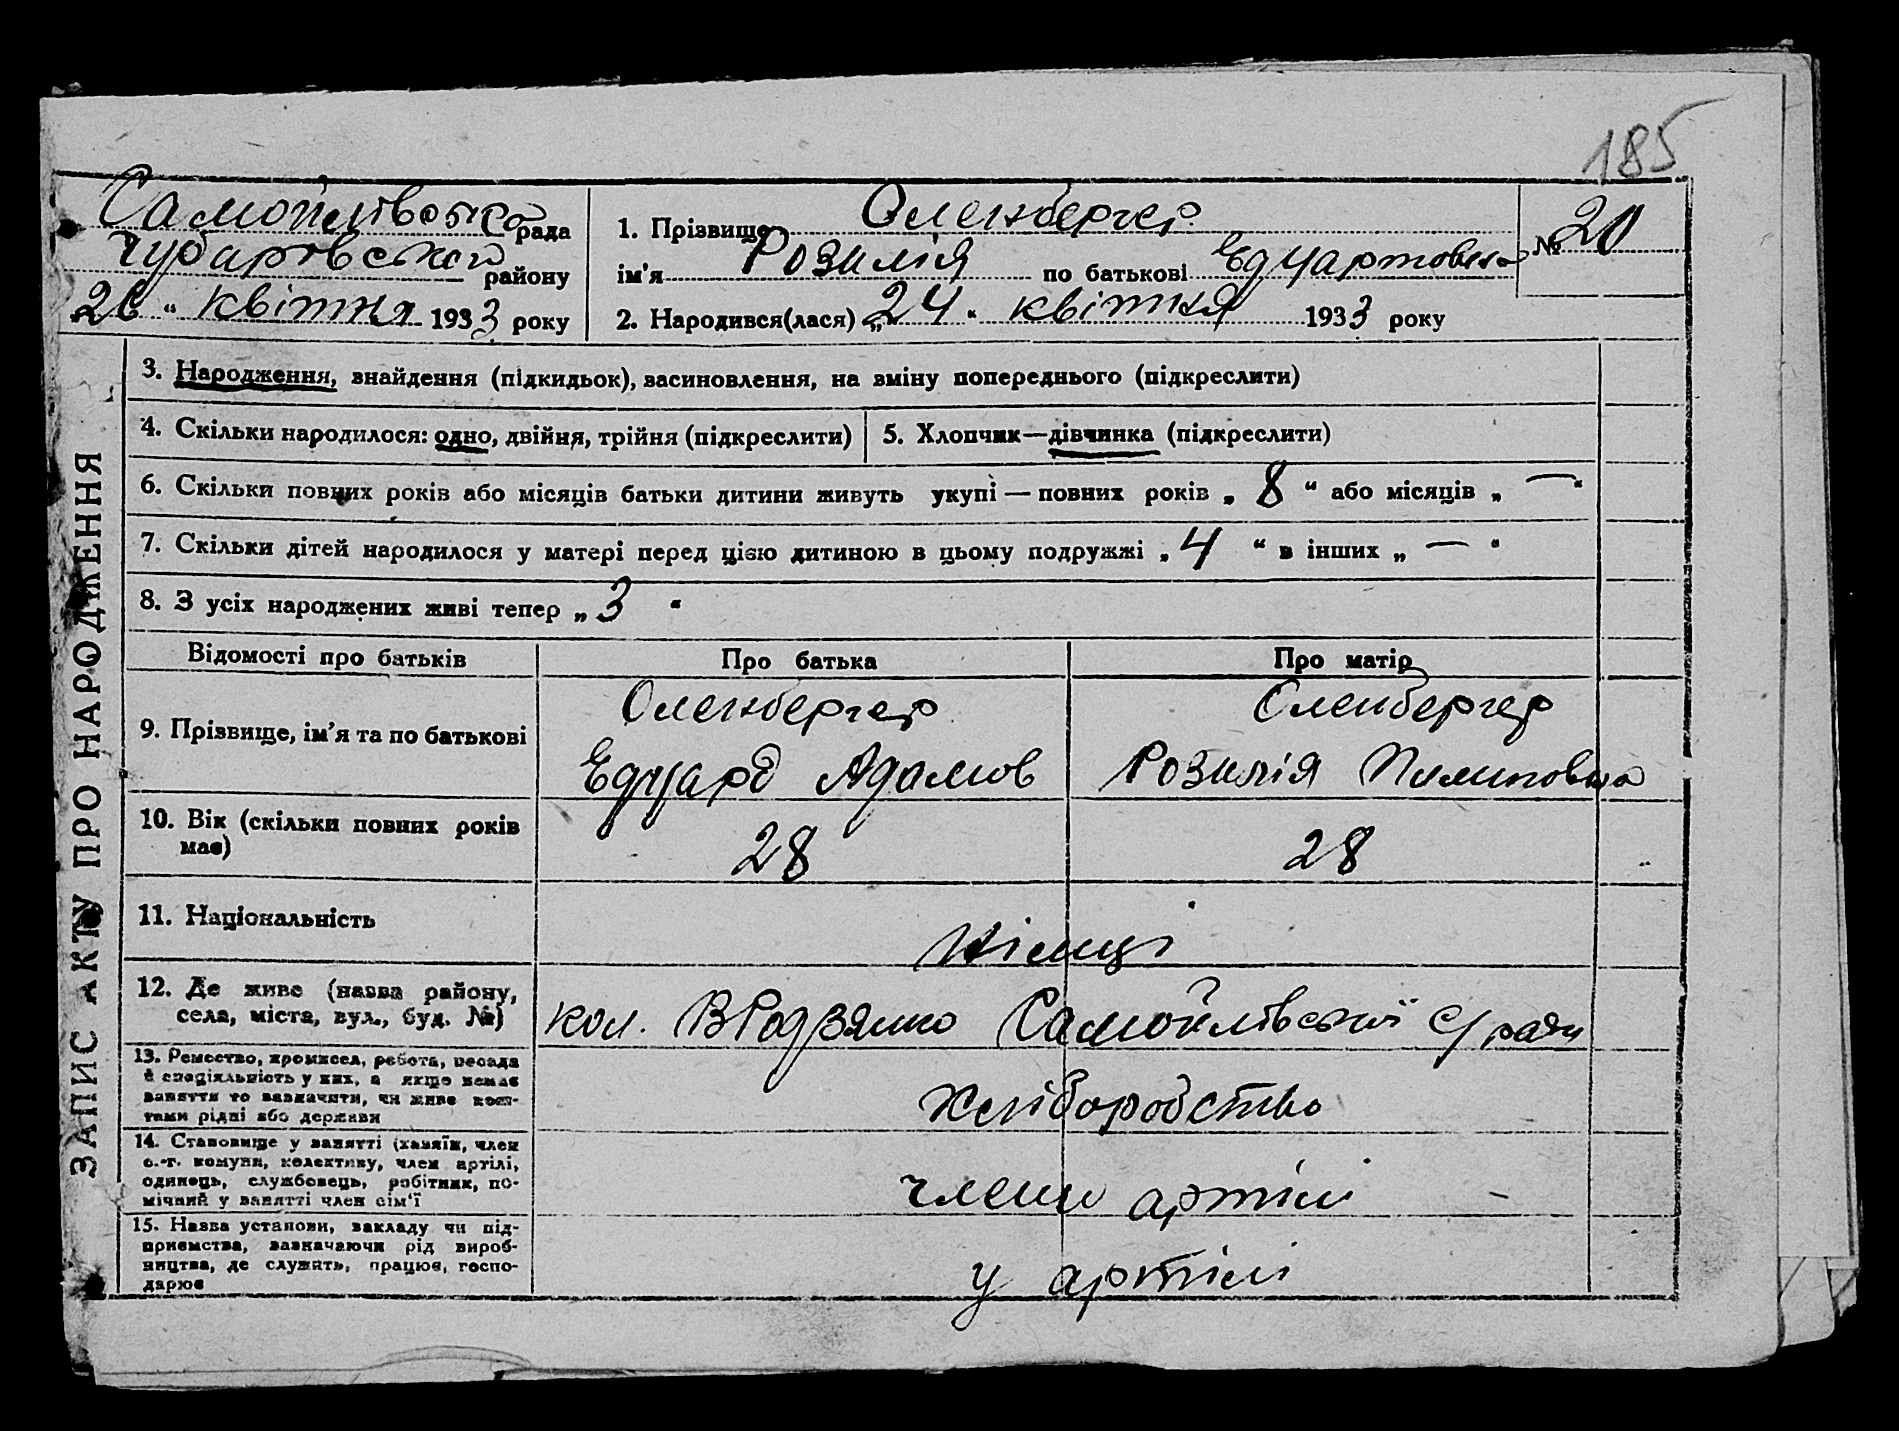 185
Самойлівська рада
Чубарівського району
26 " квітня 1933 року
1. Прізвище Оленбергер
ім'я Розалія по батькові Едуартовна
№ 20
2. Народився(лася) „24" квітня 1933 року
ЗАПИС АКТУ ПРО НАРОДЖЕННЯ
3. Народження, знайдення (підкидьок), васиновлення, на зміну попереднього (підкреслити)
4. Скільки народилося: одно, двійня, трійня (підкреслити)
5. Хлопчик—дівчинка (підкреслити)
6. Скільки повних років або місяців батьки дитини живуть укупі — повних років „ 8 " або місяців „ — "
7. Скільки дітей народилося у матері перед цією дитиною в цьому подружжі „ 4 " в інших „ — "
8. З усіх народжених живі тепер „ 3 "
Відомості про батьків
Про батька
Про матір
9. Прізвище, ім'я та по батькові
Оленбергер
Едуард Адамов
Оленбергер
Розалія Пилиповна
10. Вік (скільки повних років
має)
28
28
11. Національність
Німці
12. Де живе (назва району,
села, міста, вул., буд. №)
кол. Родзянко Самойлівської с/ради
13. Ремество, промисел, робота, посада
й спеціяльність у них, а якщо немає
заняття то зазначити, чи живе кош-
тами рідні або держави
Хліборобство
14. Становище у занятті (хазяїн, член
с.-г. комуни, колективу, член артілі,
одинець, службовець, робітник, по-
мічний у занятті член сім'ї
члени артілі
15. Назва установи, закладу чи під-
приємства, зазначаючи рід вироб-
ництва, де служить, працює, госпо-
дарює
у артілі